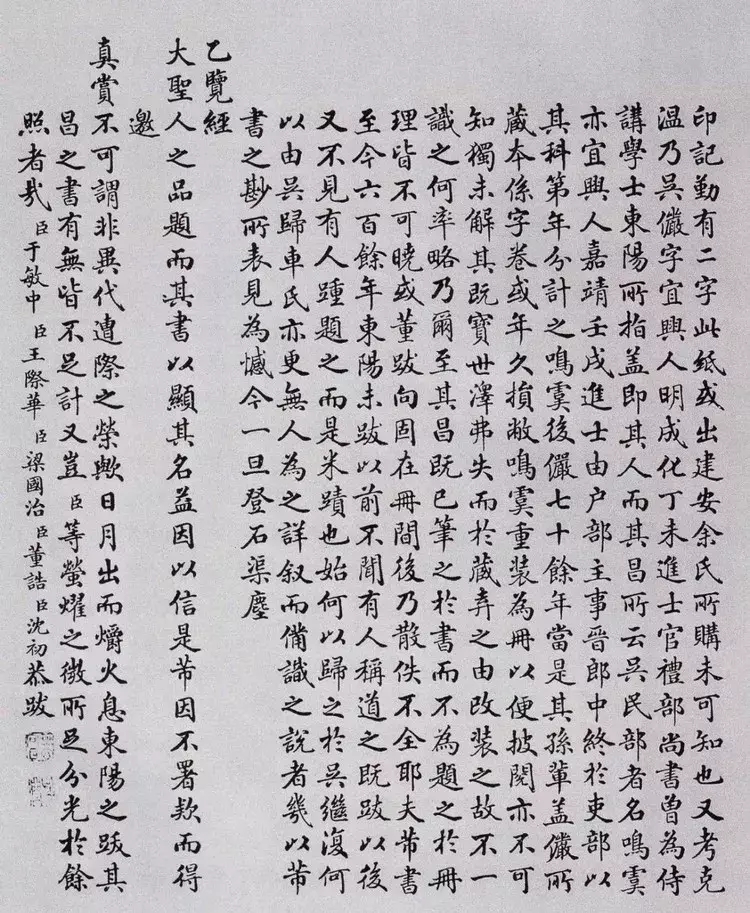 印記勤有二字此紙或出建安余氏所購未可知也又考克
温乃吳儼字宜興人明成化丁未進士官禮部尚書曾為侍
講學士東陽所指盖即其人而其昌所云吳民部者名鳴虞
亦宜興人嘉靖壬戌進士由户部主事晉郎中終於吏部以
其科第年分計之鳴虞後儼七十餘年當是其孫輩盖儼所
藏本係字卷或年久損敝鳴虞重装為冊以便披閱亦不可
知獨未解其既寶世澤弗失而於藏弆之由改装之故不一
識之何率略乃爾至其昌既已筆之於書而不為題之於冊
理皆不可曉或董跋向固在冊間後乃散佚不全耶夫芾書
至今六百餘年東陽未跋以前不聞有人稱道之既跋以後
又不見有人踵題之而是米蹟也始何以歸之於吳繼復何
以由吳歸車氏亦更無人為之詳叙而備識之說者幾以芾
書之尠所表見為憾今一旦登石渠塵
乙覽經
大聖人之品題而其書以顯其名益因以信是芾因不署款而得
邀
真賞不可謂非異代遭際之榮歟日月出而爝火息東陽之跋其
昌之書有無皆不足計又豈臣等螢燿之微所足分光於餘
照者哉 臣于敏中 臣王際華 臣梁國治 臣董誥 臣沈初 恭跋